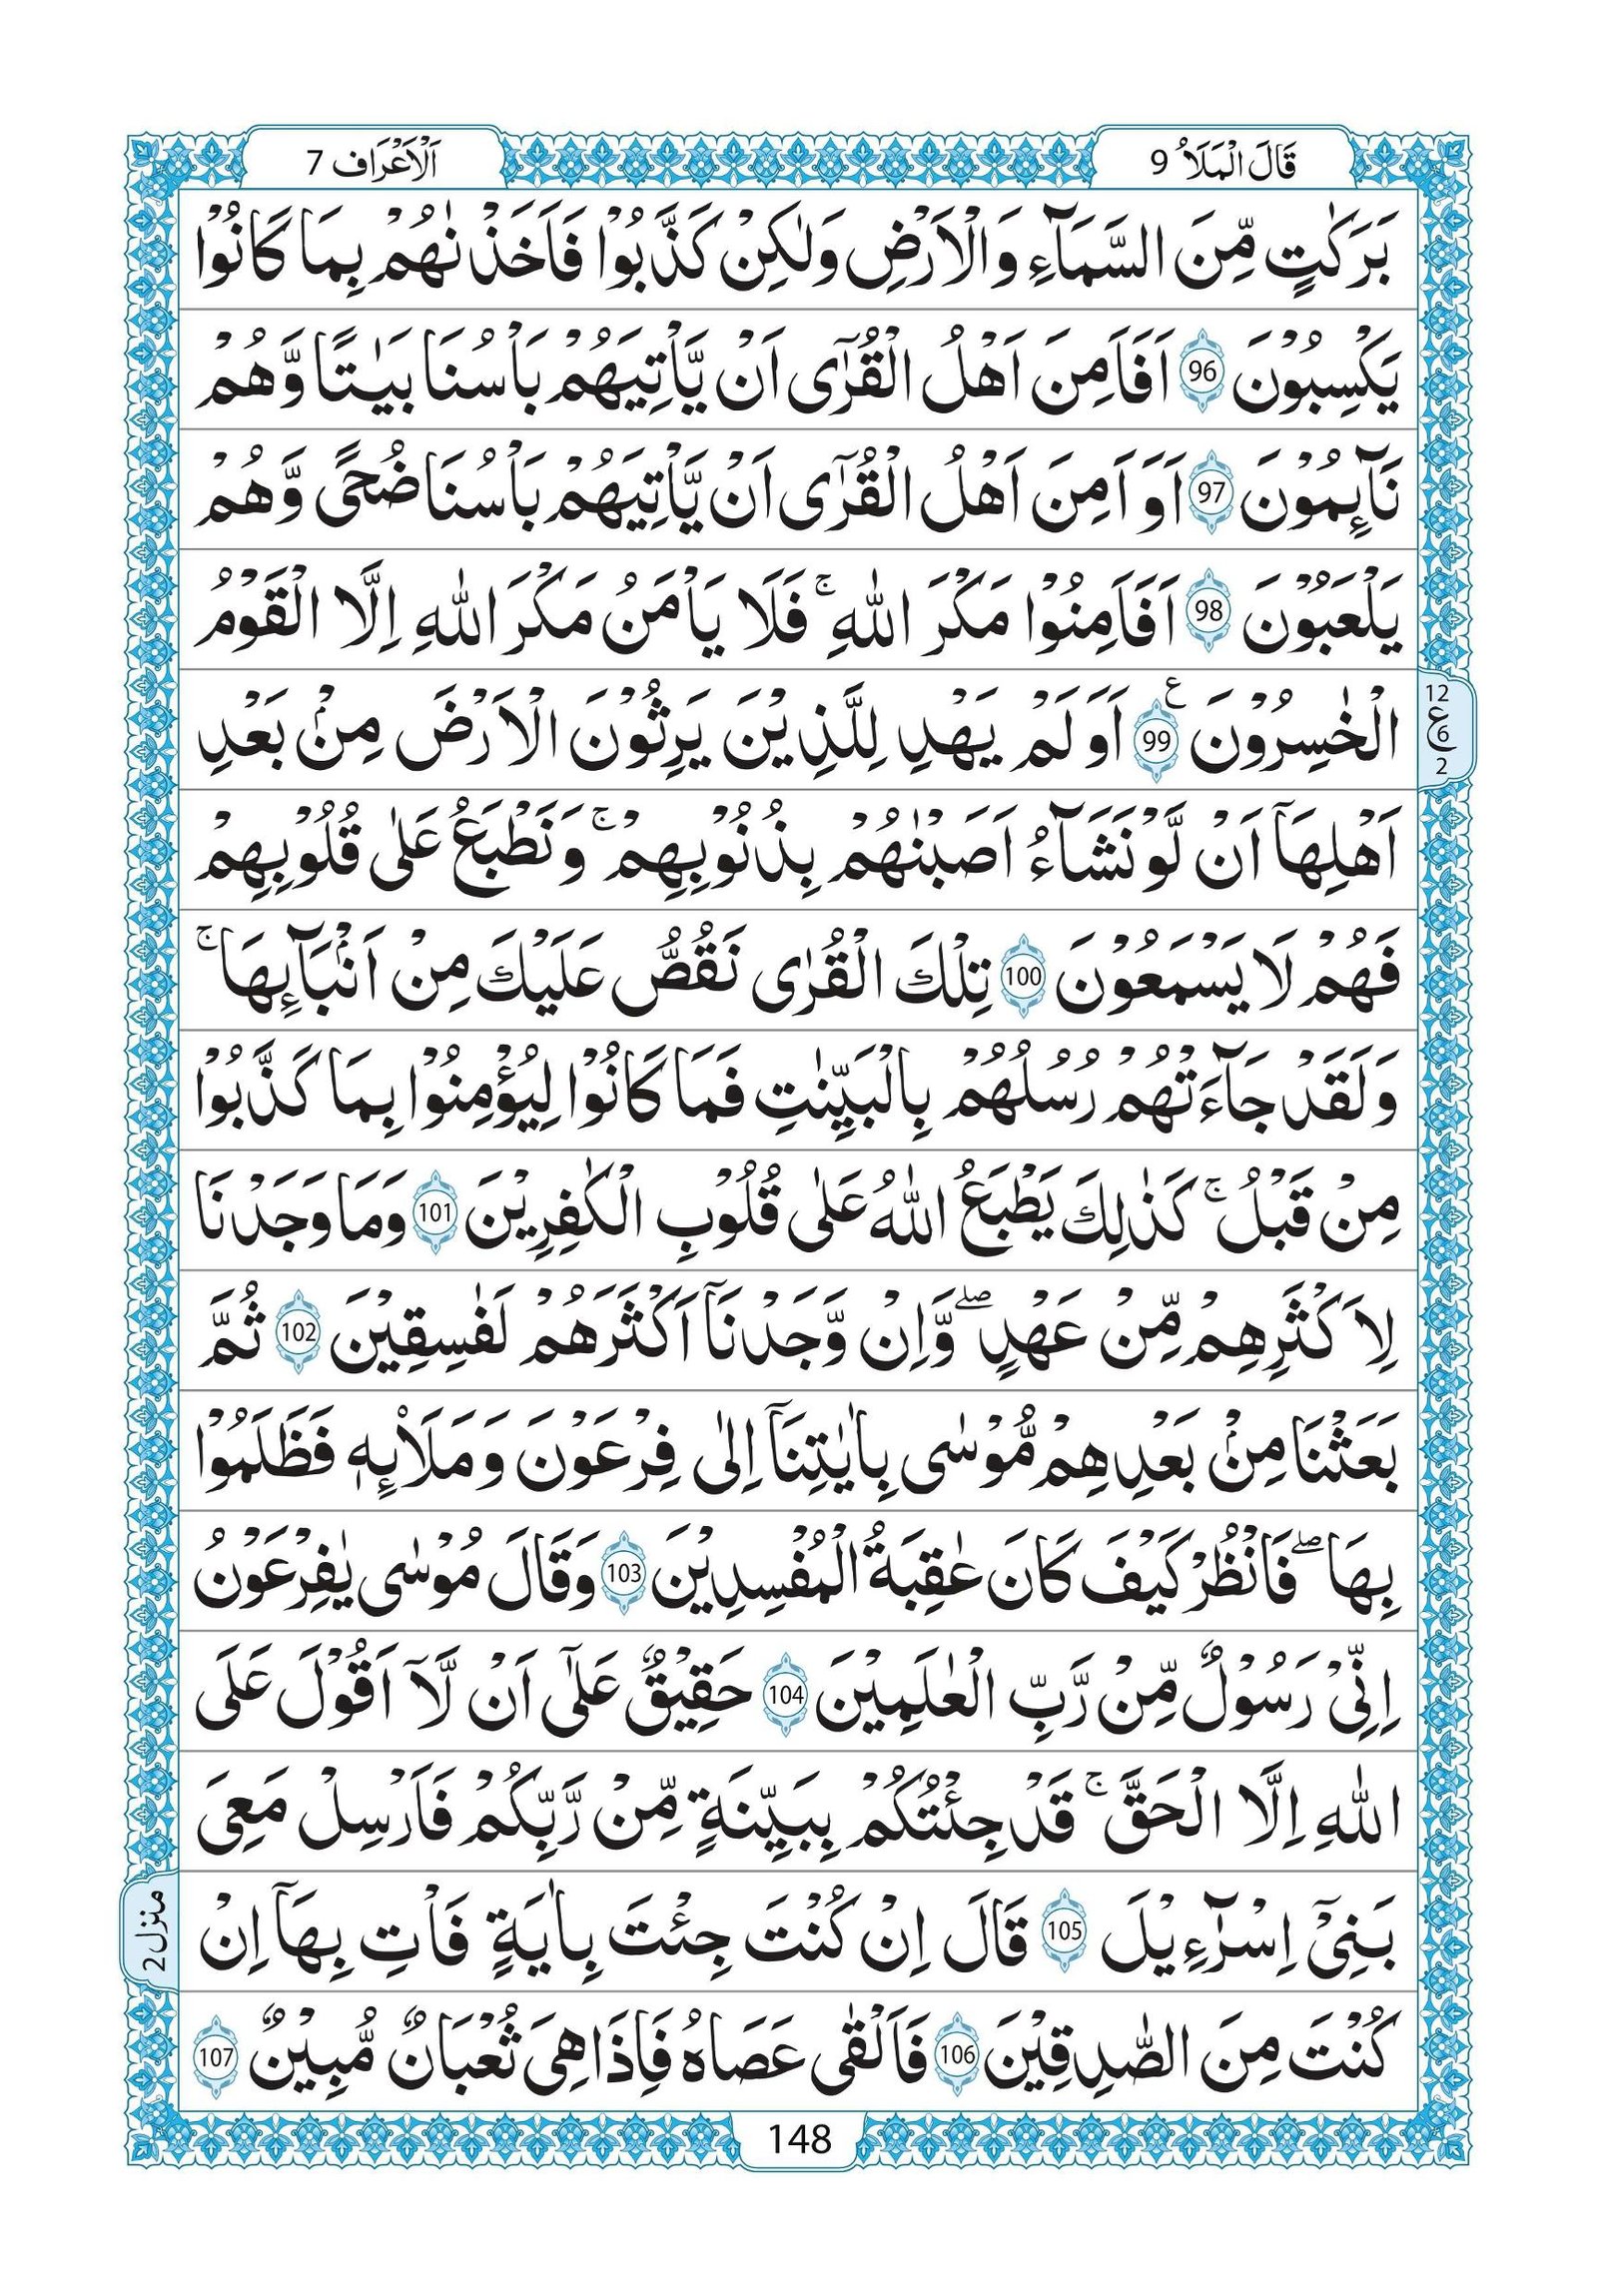 قَالَ الْمَلَاُ 9
اَلْاَعْرَاف 7
بَرَكٰتٍ مِّنَ السَّمَآءِ وَالْاَرْضِ وَلٰكِنْ كَذَّبُوْا فَاَخَذْنٰهُمْ بِمَا كَانُوْا
يَكْسِبُوْنَ 96 اَفَاَمِنَ اَهْلُ الْقُرٰٓى اَنْ يَّاْتِيَهُمْ بَاْسُنَا بَيٰتًا وَّهُمْ
نَآئِمُوْنَ 97 اَوَ اَمِنَ اَهْلُ الْقُرٰٓى اَنْ يَّاْتِيَهُمْ بَاْسُنَا ضُحًى وَّهُمْ
يَلْعَبُوْنَ 98 اَفَاَمِنُوْا مَكْرَ اللّٰهِ ۚ فَلَا يَاْمَنُ مَكْرَ اللّٰهِ اِلَّا الْقَوْمُ
الْخٰسِرُوْنَ 99 ع اَوَلَمْ يَهْدِ لِلَّذِيْنَ يَرِثُوْنَ الْاَرْضَ مِنْۢ بَعْدِ
12 ع 6 2
اَهْلِهَآ اَنْ لَّوْ نَشَآءُ اَصَبْنٰهُمْ بِذُنُوْبِهِمْ ۚ وَنَطْبَعُ عَلٰى قُلُوْبِهِمْ
فَهُمْ لَا يَسْمَعُوْنَ 100 تِلْكَ الْقُرٰى نَقُصُّ عَلَيْكَ مِنْ اَنْۢبَآئِهَا ۚ
وَلَقَدْ جَآءَتْهُمْ رُسُلُهُمْ بِالْبَيِّنٰتِ فَمَا كَانُوْا لِيُؤْمِنُوْا بِمَا كَذَّبُوْا
مِنْ قَبْلُ ۚ كَذٰلِكَ يَطْبَعُ اللّٰهُ عَلٰى قُلُوْبِ الْكٰفِرِيْنَ 101 وَمَا وَجَدْنَا
لِاَكْثَرِهِمْ مِّنْ عَهْدٍ ۖ وَّاِنْ وَّجَدْنَآ اَكْثَرَهُمْ لَفٰسِقِيْنَ 102 ثُمَّ
بَعَثْنَا مِنْۢ بَعْدِهِمْ مُّوْسٰى بِاٰيٰتِنَآ اِلٰى فِرْعَوْنَ وَمَلَا۟ئِهٖ فَظَلَمُوْا
بِهَا ۖ فَانْظُرْ كَيْفَ كَانَ عٰقِبَةُ الْمُفْسِدِيْنَ 103 وَقَالَ مُوْسٰى يٰفِرْعَوْنُ
اِنِّيْ رَسُوْلٌ مِّنْ رَّبِّ الْعٰلَمِيْنَ 104 حَقِيْقٌ عَلٰٓى اَنْ لَّآ اَقُوْلَ عَلَى
اللّٰهِ اِلَّا الْحَقَّ ۚ قَدْ جِئْتُكُمْ بِبَيِّنَةٍ مِّنْ رَّبِّكُمْ فَاَرْسِلْ مَعِيَ
بَنِيْٓ اِسْرَآءِيْلَ 105 قَالَ اِنْ كُنْتَ جِئْتَ بِاٰيَةٍ فَاْتِ بِهَآ اِنْ
منزل 2
كُنْتَ مِنَ الصّٰدِقِيْنَ 106 فَاَلْقٰى عَصَاهُ فَاِذَا هِيَ ثُعْبَانٌ مُّبِيْنٌ 107
148